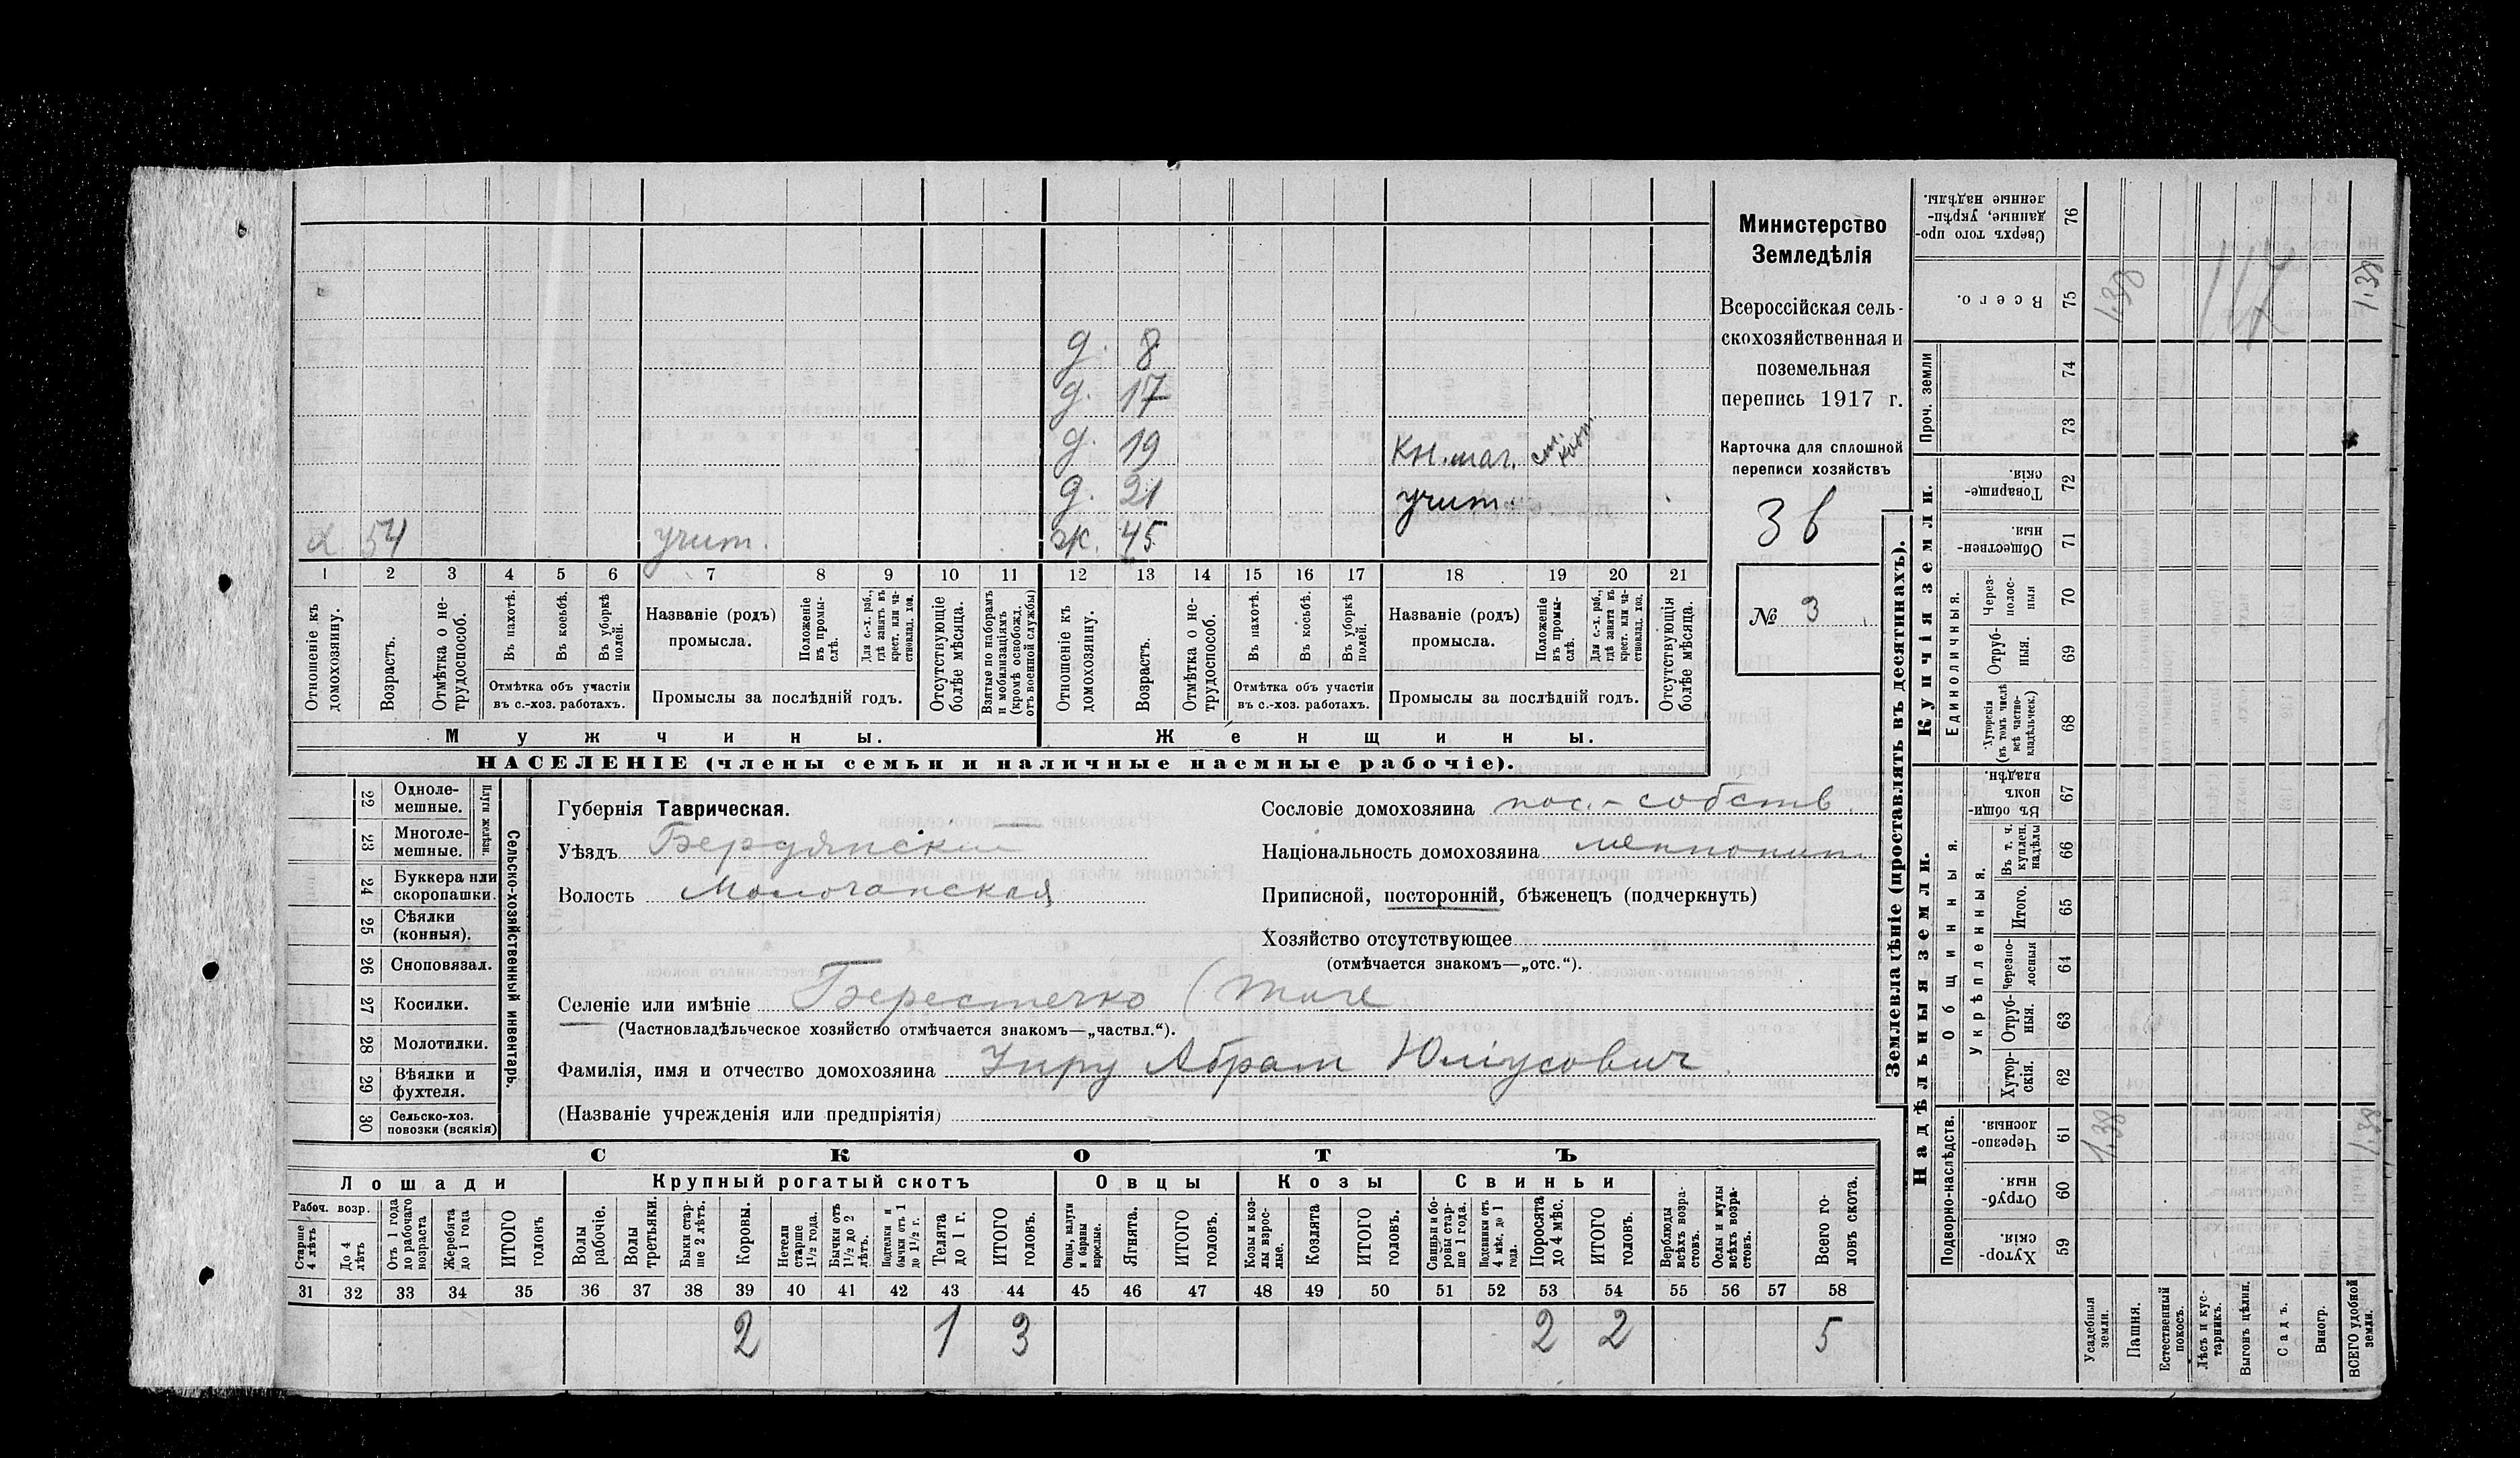 д. 8
д. 17
д. 19 Кн. маг.
д. 21 учит.
х. 54 учит. ж. 45
1 2 3 4 5 6 7 8 9 10 11 12 13 14 15 16 17 18 19 20 21
Отношеніе къ домохозяину.
Возрастъ.
Отмѣтка о нетрудоспособ.
Въ пахотѣ.
Въ косьбѣ.
Въ уборкѣ полей.
Отмѣтка объ участіи
въ с.-хоз. работахъ.
Названіе (родъ)
промысла.
Положеніе въ промыслѣ.
Для с.-х. раб., гдѣ занятъ въ крест. или частновлад. хоз.
Промыслы за послѣдній годъ.
Отсутствующіе болѣе мѣсяца.
Взятые по наборамъ и мобилизаціямъ (кромѣ освобожд. отъ военной службы)
Отношеніе къ домохозяину.
Возрастъ.
Отмѣтка о нетрудоспособ.
Въ пахотѣ.
Въ косьбѣ.
Въ уборкѣ полей.
Отмѣтка объ участіи
въ с.-хоз. работахъ.
Названіе (родъ)
промысла.
Положеніе въ промыслѣ.
Для с.-х. раб., гдѣ занятъ въ крест. или частновлад. хоз.
Промыслы за послѣдній годъ.
Отсутствующія болѣе мѣсяца.
Мужчины. Женщины.
НАСЕЛЕНІЕ (члены семьи и наличные наемные рабочіе).
Министерство
Земледѣлія
Всероссійская сель-
скохозяйственная и
поземельная
перепись 1917 г.
Карточка для сплошной
переписи хозяйствъ
3 в
№ 3
Сельско-хозяйственный инвентарь.
Плуги желѣзн.
22 Одноле-
мешные.
23 Многоле-
мешные.
24 Буккера или
скоропашки.
25 Сѣялки
(конныя).
26 Сноповязал.
27 Косилки.
28 Молотилки.
29 Вѣялки и
фухтеля.
30 Сельско-хоз.
повозки (всякія)
Губернія Таврическая.
Уѣздъ Бердянский
Волость Молочанская
Сословіе домохозяина пос.-собств.
Національность домохозяина меннонит
Приписной, посторонній, бѣженецъ (подчеркнуть)
Хозяйство отсутствующее
(отмѣчается знакомъ—„отс.“).
Селеніе или имѣніе Берестечко (Тиге
(Частновладѣльческое хозяйство отмѣчается знакомъ—„частвл.“).
Фамилія, имя и отчество домохозяина Унру Абрам Юліусович
(Названіе учрежденія или предпріятія)
СКОТЪ
Лошади
Рабоч. возр.
Старше 4 лѣтъ
До 4 лѣтъ
Отъ 1 года до рабочаго возраста
Жеребята до 1 года
ИТОГО головъ
Крупный рогатый скотъ
Волы рабочіе.
Волы третьяки.
Быки старше 2 лѣтъ.
Коровы.
Нетели старше 1½ года.
Бычки отъ 1½ до 2 лѣтъ.
Подтелки и бычки отъ 1 до 1½ г.
Телята до 1 г.
ИТОГО головъ.
Овцы
Овцы, валухи и бараны взрослые.
Ягнята.
ИТОГО головъ.
Козы
Козы и козлы взрослые.
Козлята
ИТОГО головъ.
Свиньи
Свиньи и боровы старше 1 года.
Подсвинки отъ 4 мѣс. до 1 года.
Поросята до 4 мѣс.
ИТОГО головъ.
Верблюды всѣхъ возрастовъ.
Ослы и мулы всѣхъ возрастовъ.
Всего головъ скота.
31 32 33 34 35 36 37 38 39 40 41 42 43 44 45 46 47 48 49 50 51 52 53 54 55 56 57 58
2 1 3 2 2 5
Землевладѣніе (проставлять въ десятинахъ).
Купчія земли.
Надѣльныя земли.
76 Сверхъ того проданные, укрѣпленные надѣлы.
75 Всего. 1,38 1,38
Проч. земли
74
73
72 Товарищескія.
71 Общественныя.
Единоличныя.
70 Черезполосныя
69 Отрубныя.
68 Хуторскія (въ томъ числѣ всѣ частновладѣльческ.)
Общинныя.
67 Въ общинномъ владѣн.
Укрѣпленныя.
66 Въ т. ч. куплен. надѣлы
65 Итого.
64 Черезполосныя
63 Отрубныя.
62 Хуторскія.
Подворно-наслѣдств.
61 Черезполосныя. 1,38 1,38
60 Отрубныя.
59 Хуторскія.
Усадебныя земли.
Пашня.
Естественный покосъ.
Лѣсъ и кустарникъ.
Выгонъ цѣлин.
Садъ.
Виногр.
ВСЕГО удобной земли.